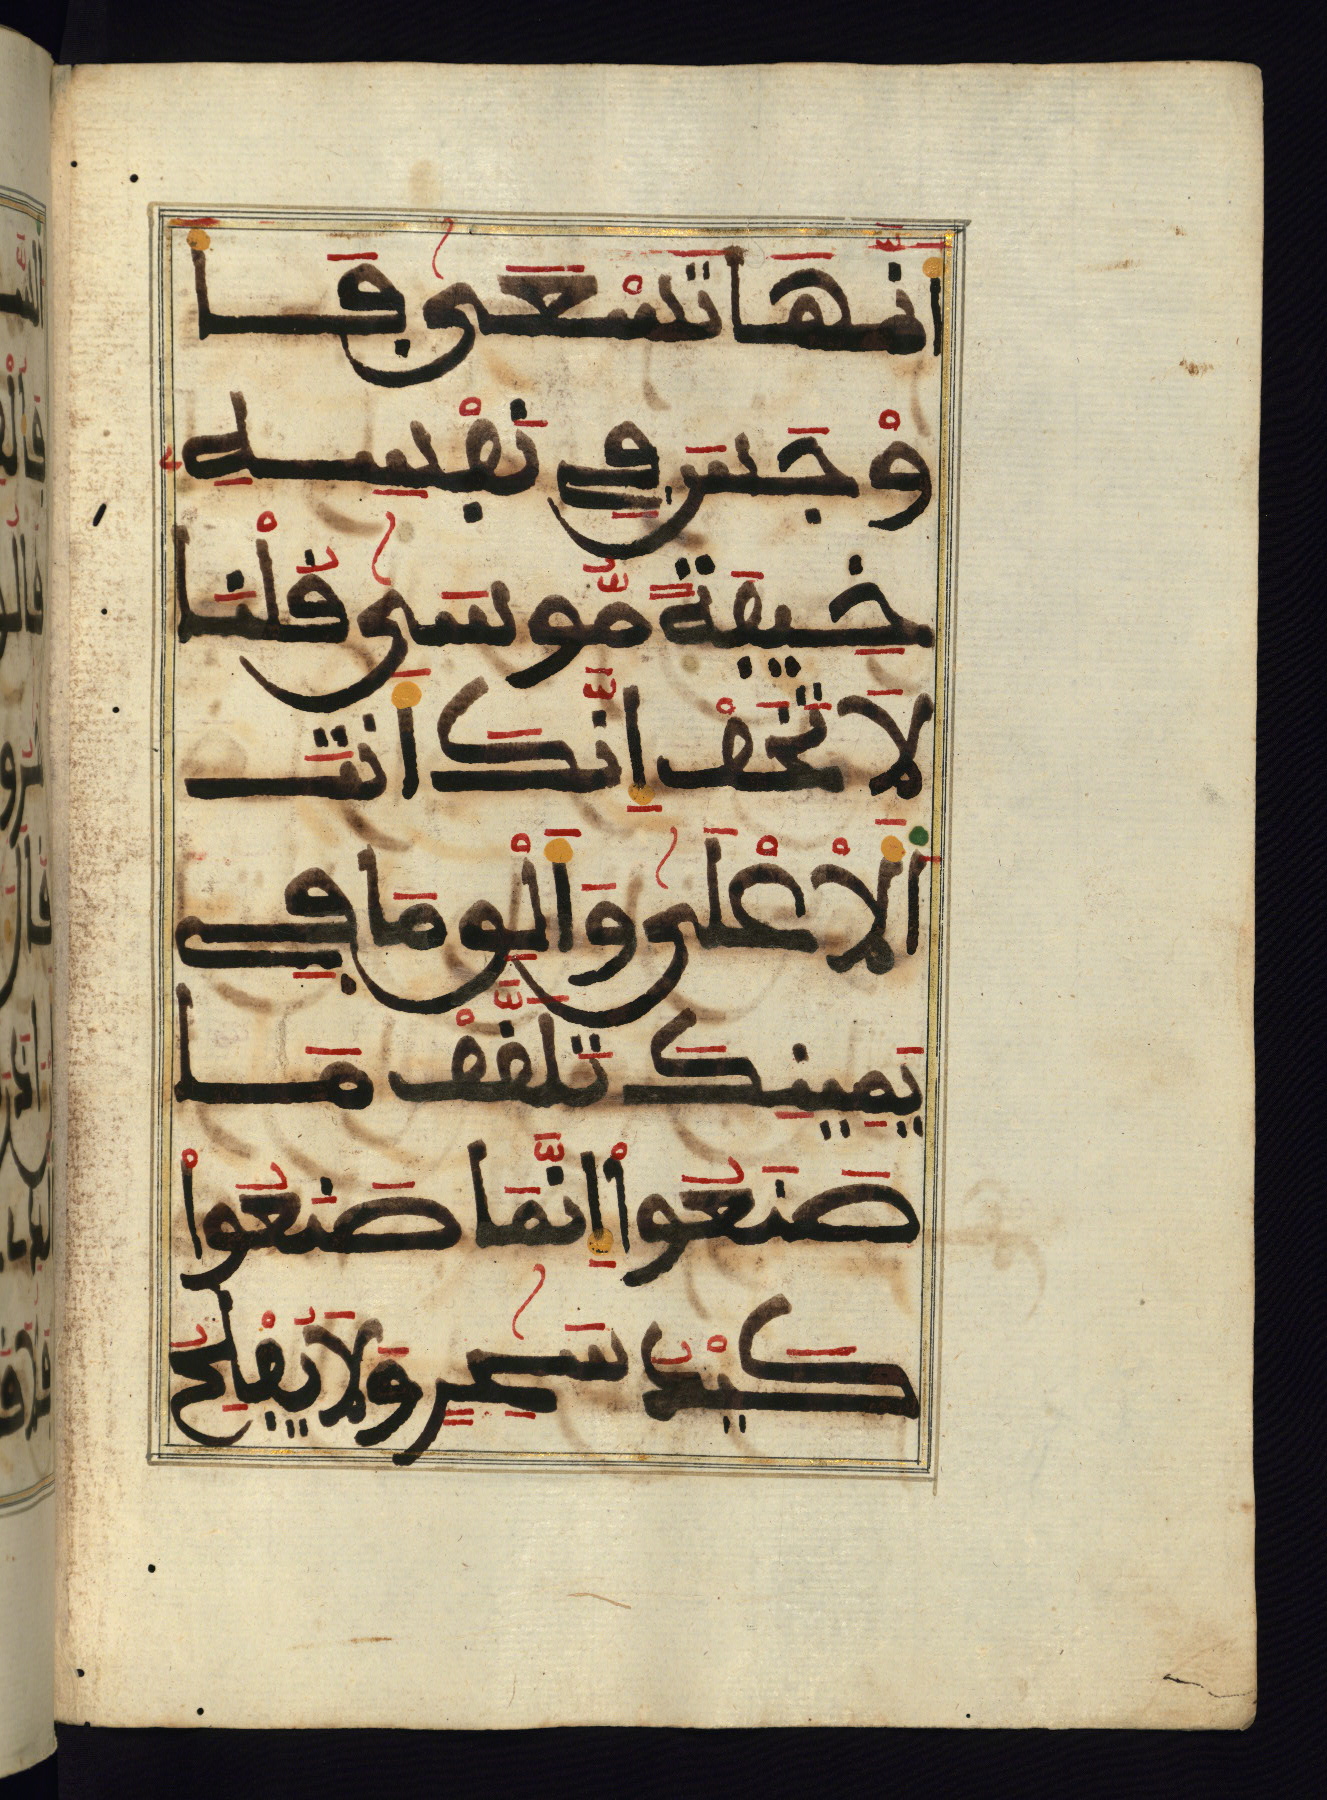 أَنَّهَا تَسْعَىٰ فَأَ
وْجَسَ فِي نَفْسِهِ
خِيفَةً مُّوسَىٰ قُلْنَا
لَا تَخَفْ إِنَّكَ أَنتَ
اَلْأَعْلَىٰ وَأَلْقِ مَا فِي
يَمِينِكَ تَلَقَّفْ مَا
صَنَعُواْ إِنَّمَا صَنَعُواْ
كَيْدُ سَٰحِرٍ وَلَا يُفْلِحُ